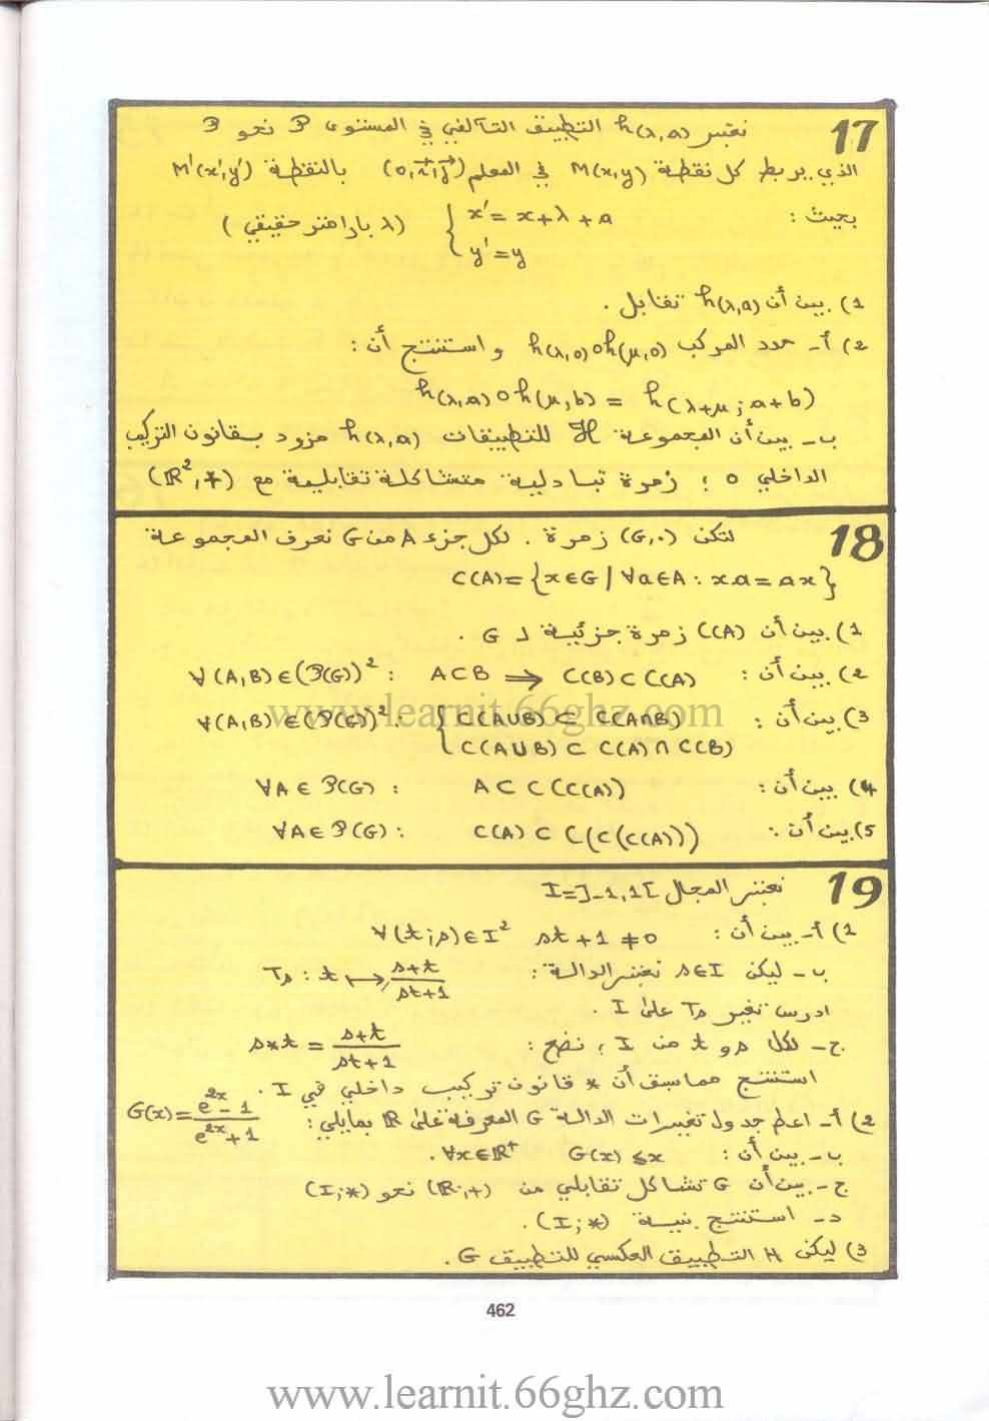 17
نعتبر h(λ,a) التطبيق التآلفي في المستوى P نحو P
الذي يربط كل نقطة M(x,y) في المعلم (o,i⃗,j⃗) بالنقطة M'(x',y')
بحيث : { x' = x+λ+a (λ بارامتر حقيقي)
y' = y
1) بين أن h(λ,a) تقابل .
2) أ- حدد المركب h(λ,0)oh(μ,0) و استنتج أن :
h(λ,a)oh(μ,b) = h(λ+μ ; a+b)
ب- بين أن المجموعة H للتطبيقات h(λ,a) مزود بقانون التركيب
الداخلي o ؛ زمرة تبادلية متشاكلة تقابليمة مع (ℝ²,+)
18
لتكن (G,·) زمرة . لكل جزء A من G نعرف المجموعة
C(A)= {x∈G | ∀a∈A : xa = ax}
1) بين أن C(A) زمرة جزئية ل G .
2) بين أن : ∀(A,B)∈(P(G))² : A⊂B ⇒ C(B)⊂C(A)
3) بين أن : ∀(A,B)∈(P(G))² : { C(A∪B) ⊂ C(A∩B)
C(A∪B) ⊂ C(A)∩C(B)
4) بين أن : ∀A∈P(G) : A⊂C(C(A))
5) بين أن : ∀A∈P(G) : C(A)⊂C(C(C(A)))
19
نعتبر المجال I=]-1,1[
1) أ- بين أن : ∀(t;s)∈I² st+1≠0
ب- ليكن s∈I نعتبر الدالة : Ts : t ↦ (s+t)/(st+1)
ادرس تغير Ts على I .
ج- لكل s و t من I ؛ نضع : s*t = (s+t)/(st+1)
استنتج مما سبق أن * قانون تركيب داخلي في I .
2) أ- اعط جدول تغيرات الدالة G المعرفة على ℝ بمايلي : G(x) = (e^{2x}-1)/(e^{2x}+1)
ب- بين أن : G(x) ≤ x ∀x∈ℝ⁺ .
ج- بين أن G تشاكل تقابلي من (ℝ,+) نحو (I;*)
د- استنتج بنية (I;*) .
3) ليكن H التطبيق العكسي للتطبيق G .
462
www.learnit.66ghz.com
www.learnit.66ghz.com